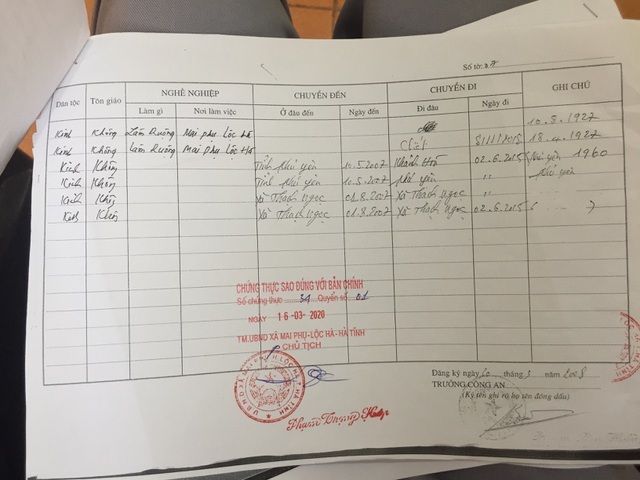 Số tờ: 27
Dân tộc Tôn giáo NGHỀ NGHIỆP CHUYỂN ĐẾN CHUYỂN ĐI GHI CHÚ
Làm gì Nơi làm việc Ở đâu đến Ngày đến Đi đâu Ngày đi
10.8.1927
Kinh Không Làm Ruộng Mai Phụ Lộc Hà
Kinh Không Làm Ruộng Mai Phụ Lộc Hà Chết 1927
Kinh Không Tỉnh Phú Yên 10.5.2007 Khánh Hoà 02.6.2015 1960
Kinh Không Tỉnh Phú Yên 10.5.2007 Phú Yên " Phú Yên
Kinh Không Xã Thạch Ngọc 01.8.2007 Xã Thạch Ngọc "
Kinh Không Xã Thạch Ngọc 01.8.2007 Xã Thạch Ngọc 02.6.2015
CHỨNG THỰC SAO ĐÚNG VỚI BẢN CHÍNH
Số chứng thực 34 Quyển số 01
NGÀY 16-03-2020
TM.UBND XÃ MAI PHỤ-LỘC HÀ-HÀ TĨNH
CHỦ TỊCH
Đăng ký ngày 20 tháng 3 năm 2008
TRƯỞNG CÔNG AN
(Ký tên ghi rõ họ tên đóng dấu)